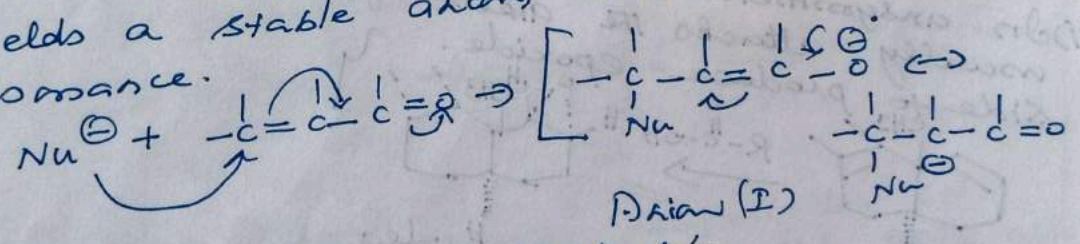 elds a stable
onance.
Nu⊖ + -C=C-C=O → [-C-C=C-O⊖ ↔
Nu
-C-C-C=O
Nu ⊖
Anion (I)